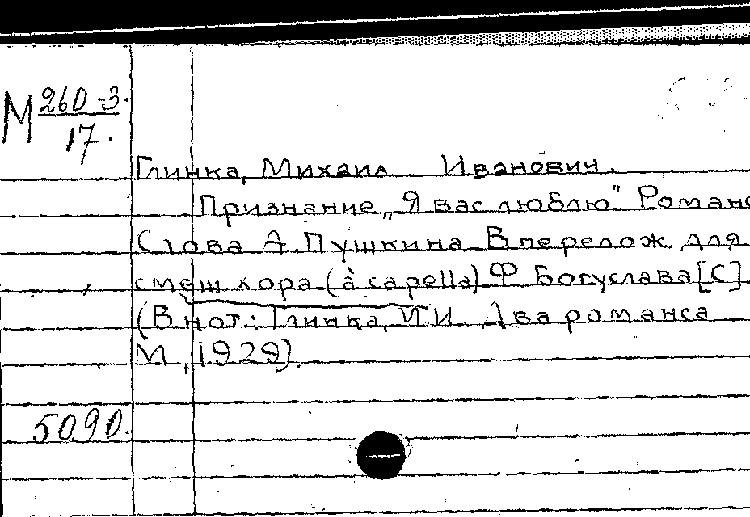 М 260-3
17.
Глинка, Михаил Иванович.
Признание „Я вас люблю" Романс
Слова А. Пушкина В перелож. для
смеш хора (à capella) Ф Богуслава [С]
(В нот: Глинка, М И Два романса
М, 1929).
5090.